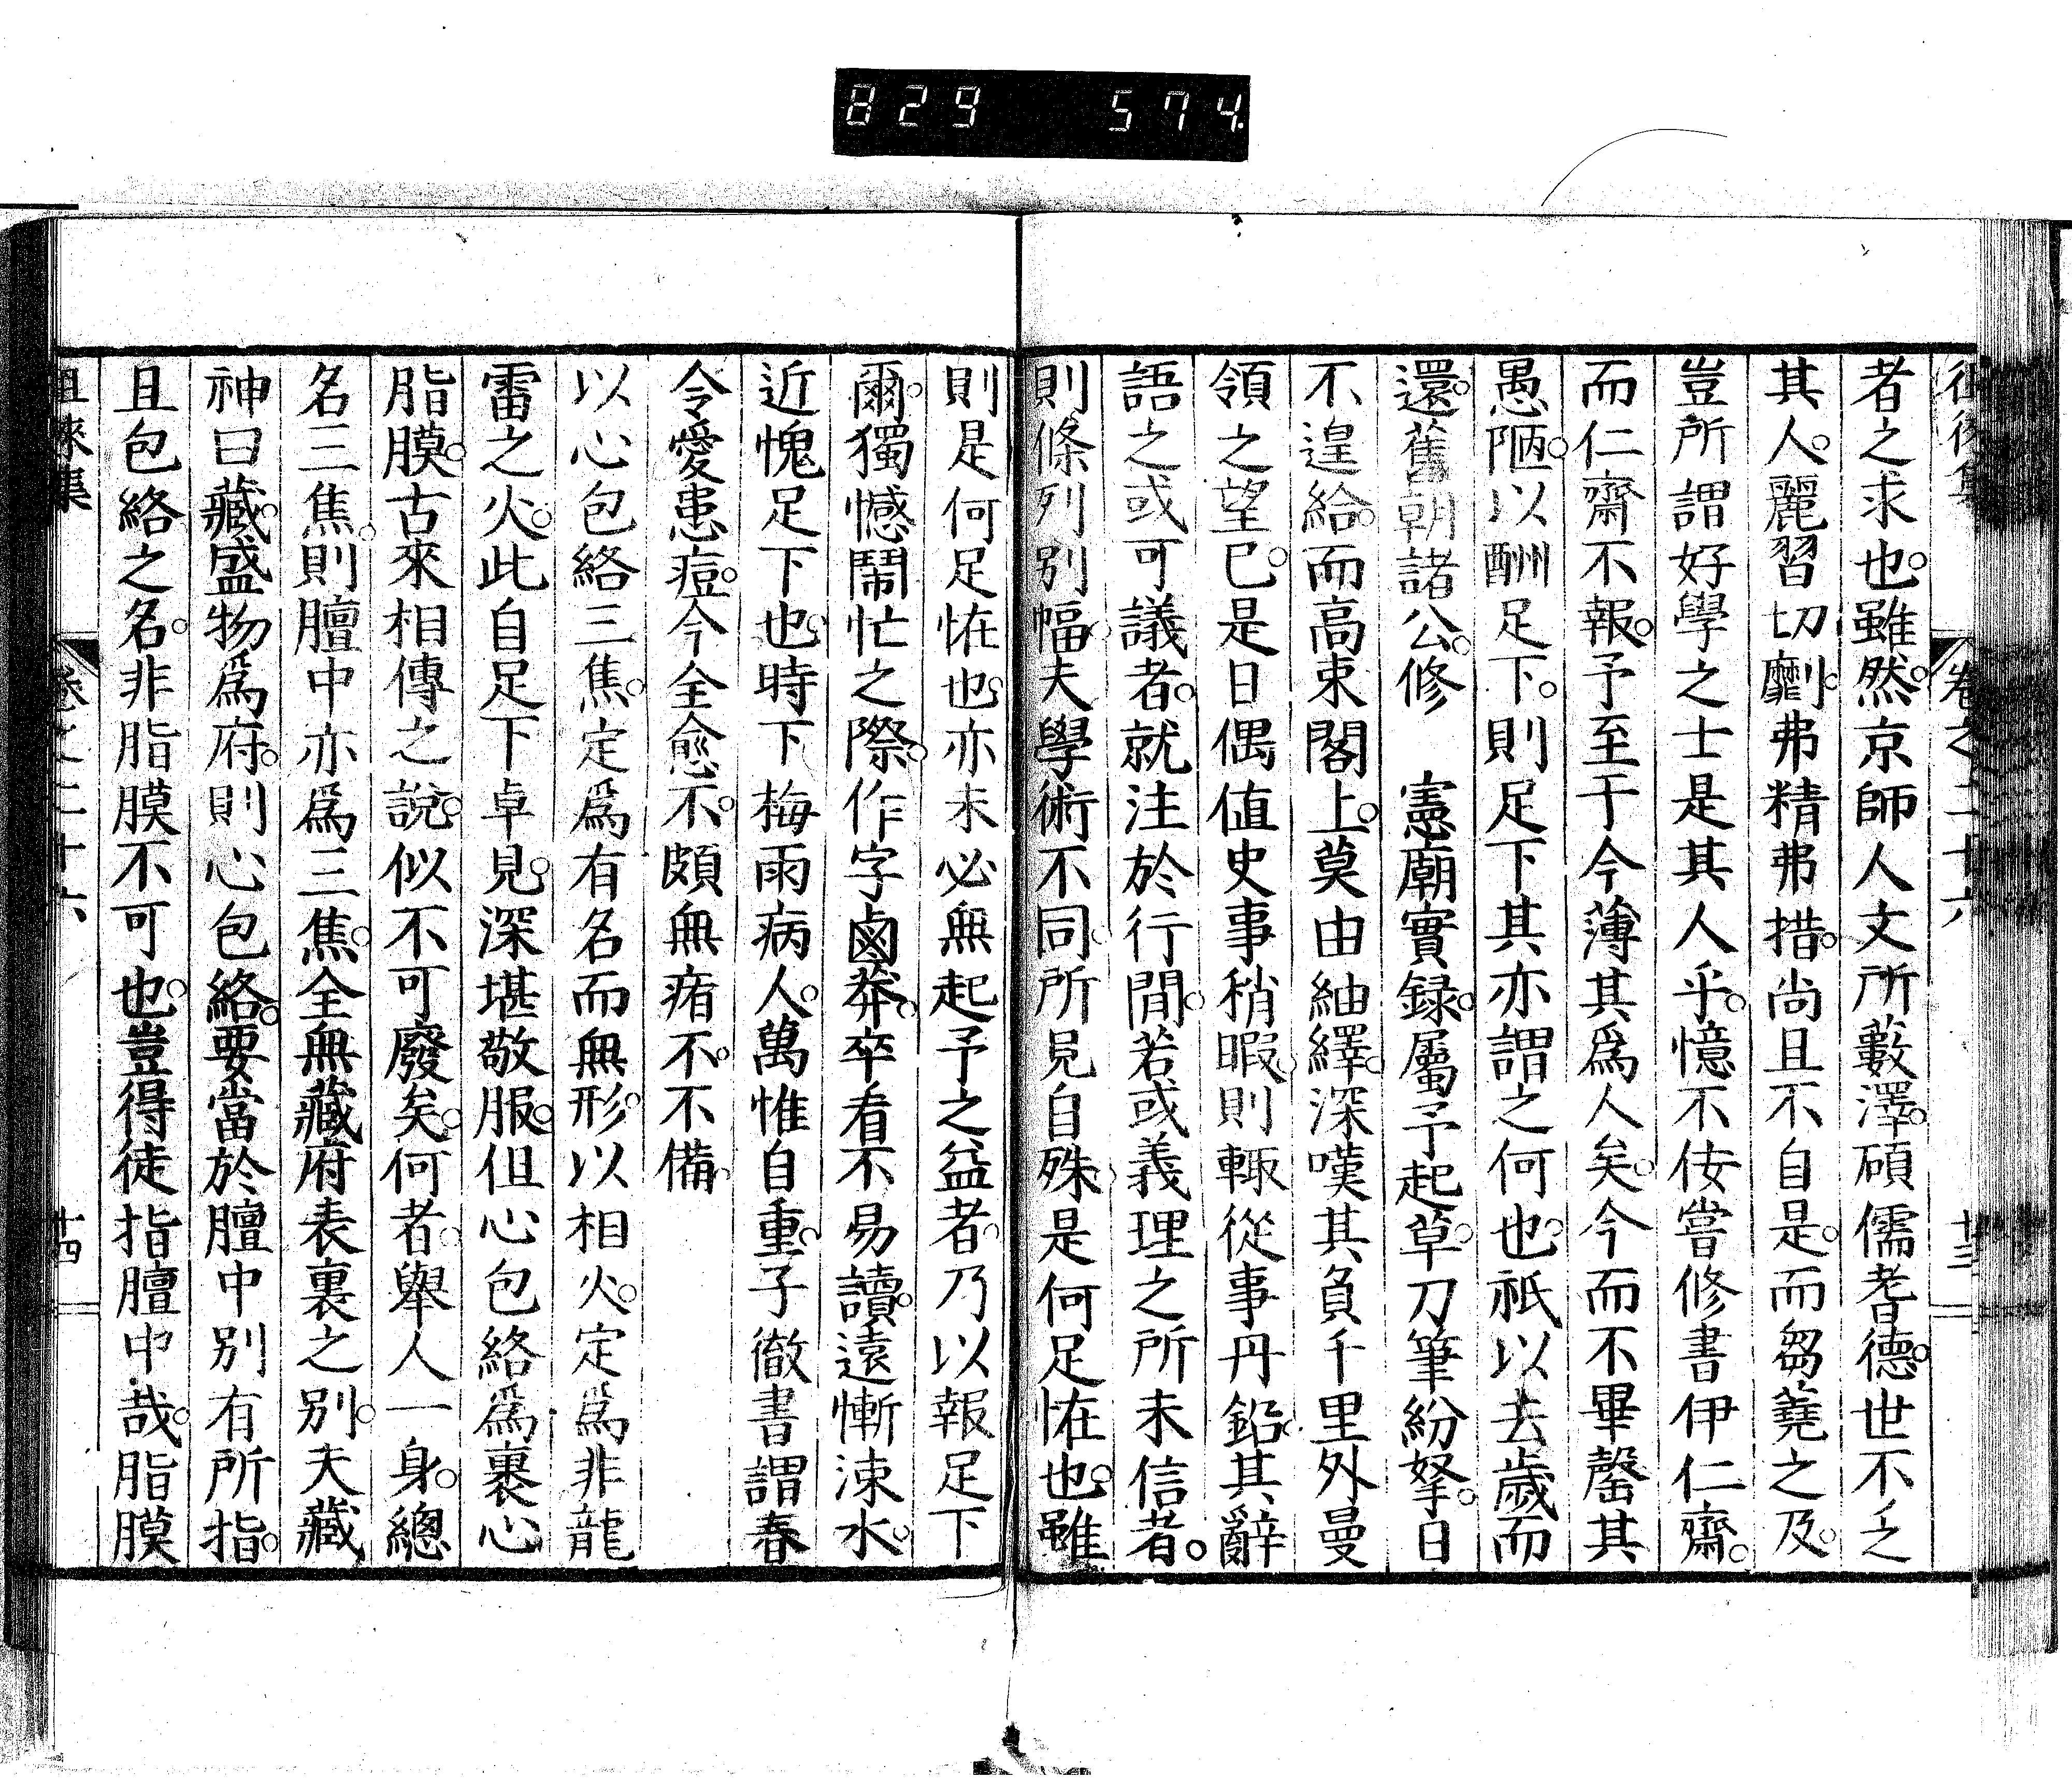 829 574
者之求也。雖然。京師人文所藪澤。碩儒耆德。世不乏
其人。麗習切劘。弗精弗措。尚且不自是。而芻蕘之及。
豈所謂好學之士是其人乎。憶不佞嘗修書伊仁齋。
而仁齋不報。予至于今薄其爲人矣。今而不畢罄其
愚陋。以酬足下。則足下其亦謂之何也。祇以去歲而
還。舊朝諸公。修 憲廟實録。屬予起草。刀筆紛拏。日
不遑給。而高束閣上。莫由紬繹。深嘆其負千里外曼
領之望已。是日偶值史事稍暇。則輙從事丹鉛。其辭
語之或可議者。就注於行間。若或義理之所未信者。
則條列別幅。夫學術不同。所見自殊。是何足恠也。雖
則是何足恠也。亦未必無起予之益者。乃以報足下
爾。獨憾鬧忙之際。作字鹵莽。卒看不易讀。遠慚涑水。
近愧足下也。時下梅雨病人。萬惟自重。子徹書謂春
令愛患痘。今全愈不。頗無痏不。不備。
以心包絡三焦。定爲有名而無形。以相火。定爲非龍
雷之火。此自足下卓見。深堪敬服。但心包絡爲裹心
脂膜。古來相傳之說。似不可廢矣。何者。舉人一身。總
名三焦。則膻中亦爲三焦。全無藏府表裏之別。夫藏
神曰藏。盛物爲府。則心包絡。要當於膻中別有所指。
且包絡之名。非脂膜不可也。豈得徒指膻中哉。脂膜
徂徠集 卷之二十六 十四
卷之二十六